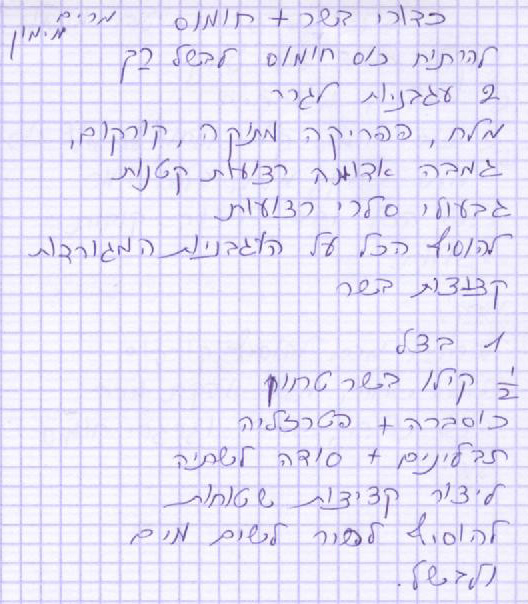 כדורי בשר + חומוס מרים מימון
להרתיח כוס חומוס לבשל רך
2 עגבניות לגרר
מלח, פפריקה מתיקה, קורקום,
גמבה אדומה רצועות קטנות
גבעולי סלרי רצועות
להוסיף הכל על העגבניות המגורדות
קצצות בשר
1 בצל
1/2 קילו בשר טחון
כוסברה + פטרזליה
תבלינים + סודה לשתיה
ליצור קציצות שטוחות
להוסיף לסיר לשים מים
ולבשל.